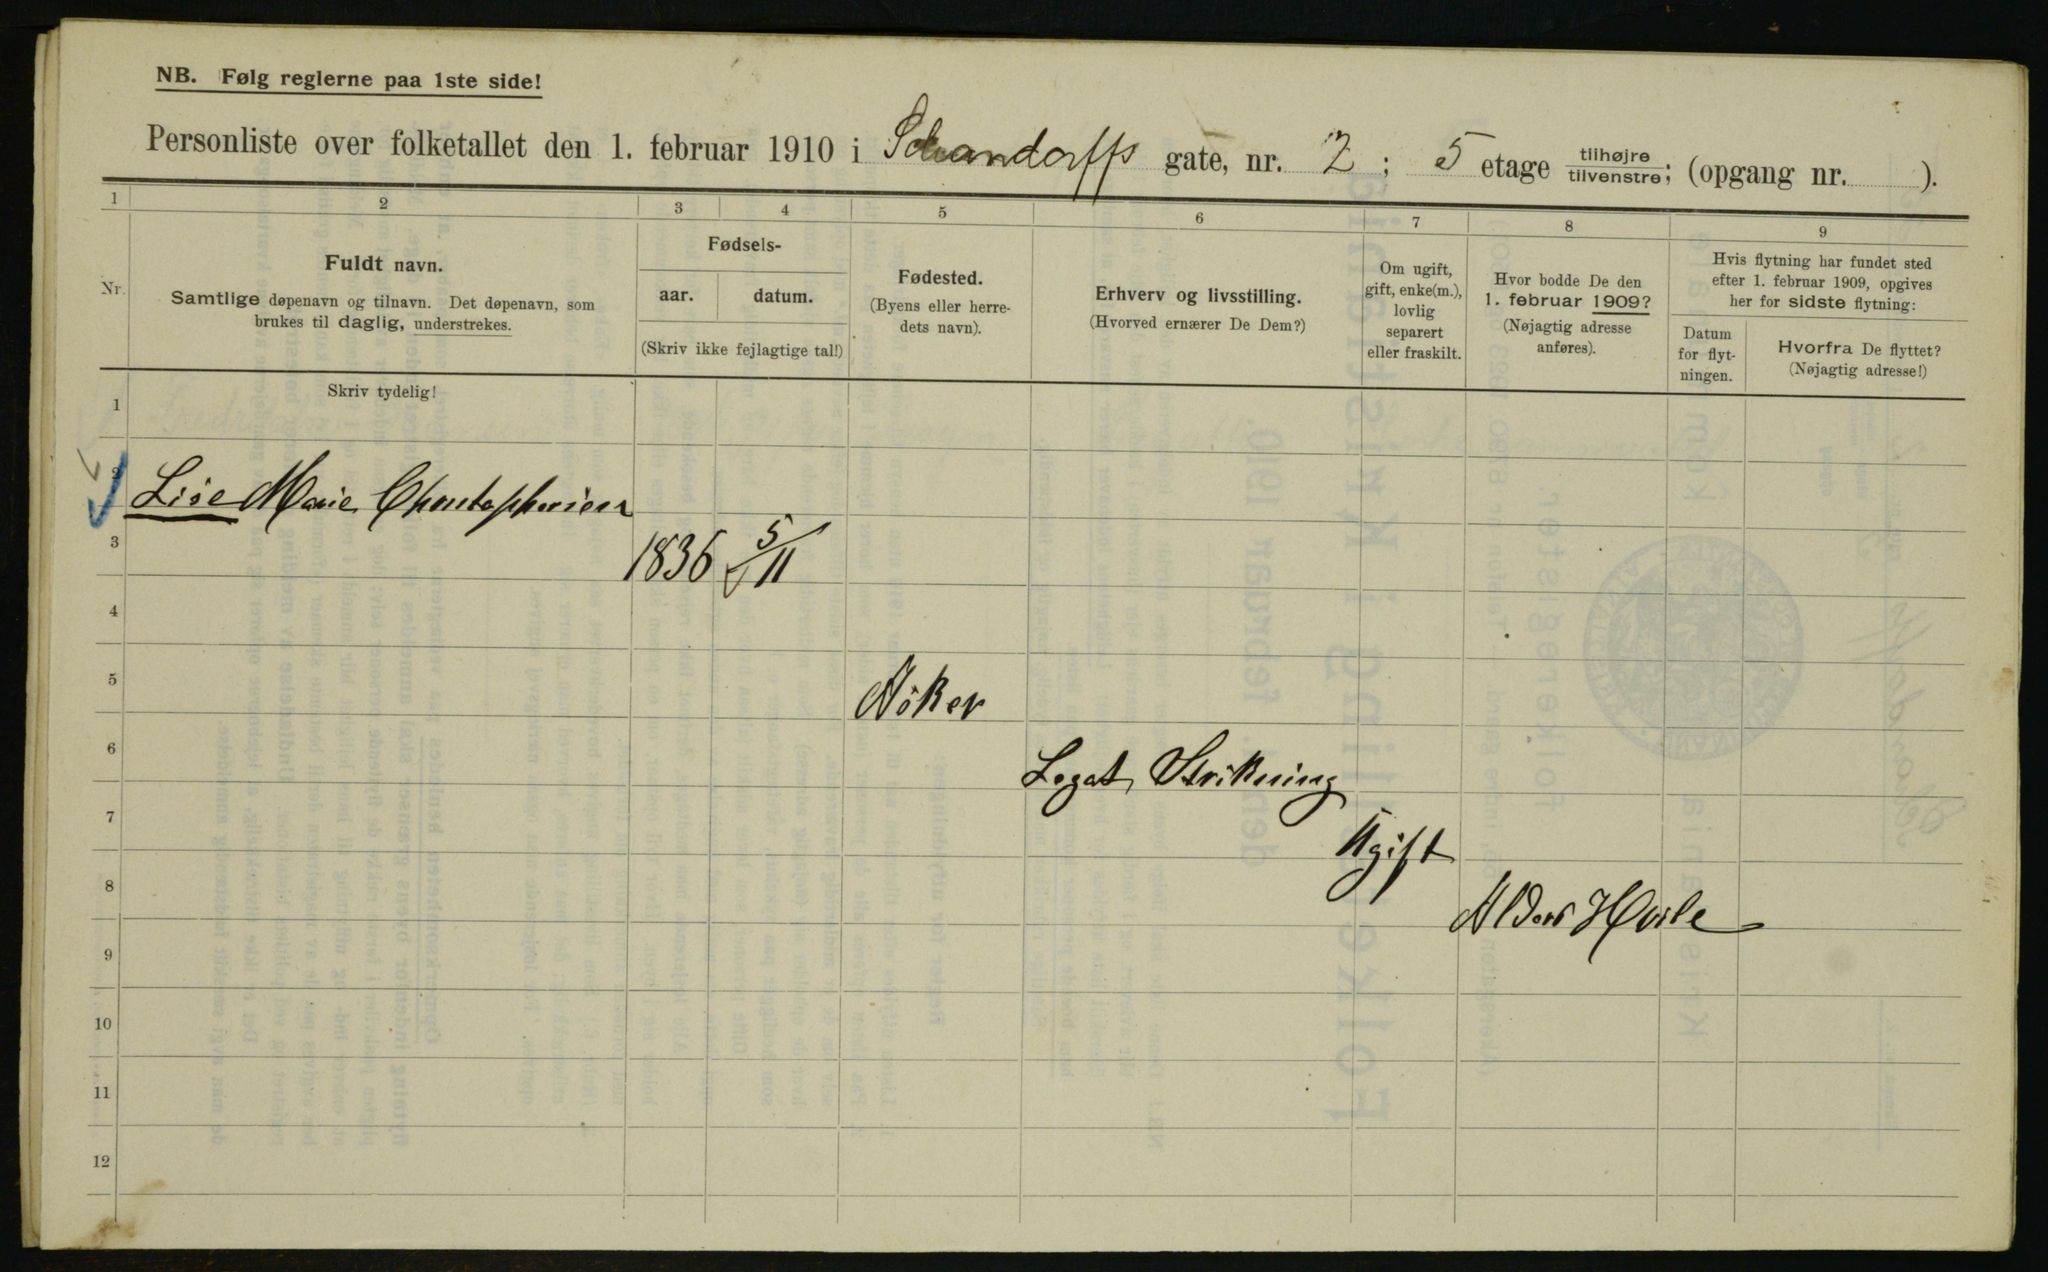 NB. Følg reglerne paa 1ste side!
Personliste over folketallet den 1. februar 1910 i Schandorffs gate, nr. 2; 5 etage tilhøjre/tilvenstre; (opgang nr. ).
1 2 3 4 5 6 7 8 9
Nr.
Fuldt navn.
Samtlige døpenavn og tilnavn. Det døpenavn, som
brukes til daglig, understrekes.
Fødsels-
aar. datum.
(Skriv ikke fejlagtige tal!)
Fødested.
(Byens eller herre-
dets navn).
Erhverv og livsstilling.
(Hvorved ernærer De Dem?)
Om ugift,
gift, enke(m.),
lovlig
separert
eller fraskilt.
Hvor bodde De den
1. februar 1909?
(Nøjagtig adresse
anføres).
Hvis flytning har fundet sted
efter 1. februar 1909, opgives
her for sidste flytning:
Datum
for flyt-
ningen.
Hvorfra De flyttet?
(Nøjagtig adresse!)
Skriv tydelig!
1
2
Lise Marie
3
1836 5/11
4
5
6
Legat Strikning
7
Ugift
8
Alders Hvile
9
10
11
12